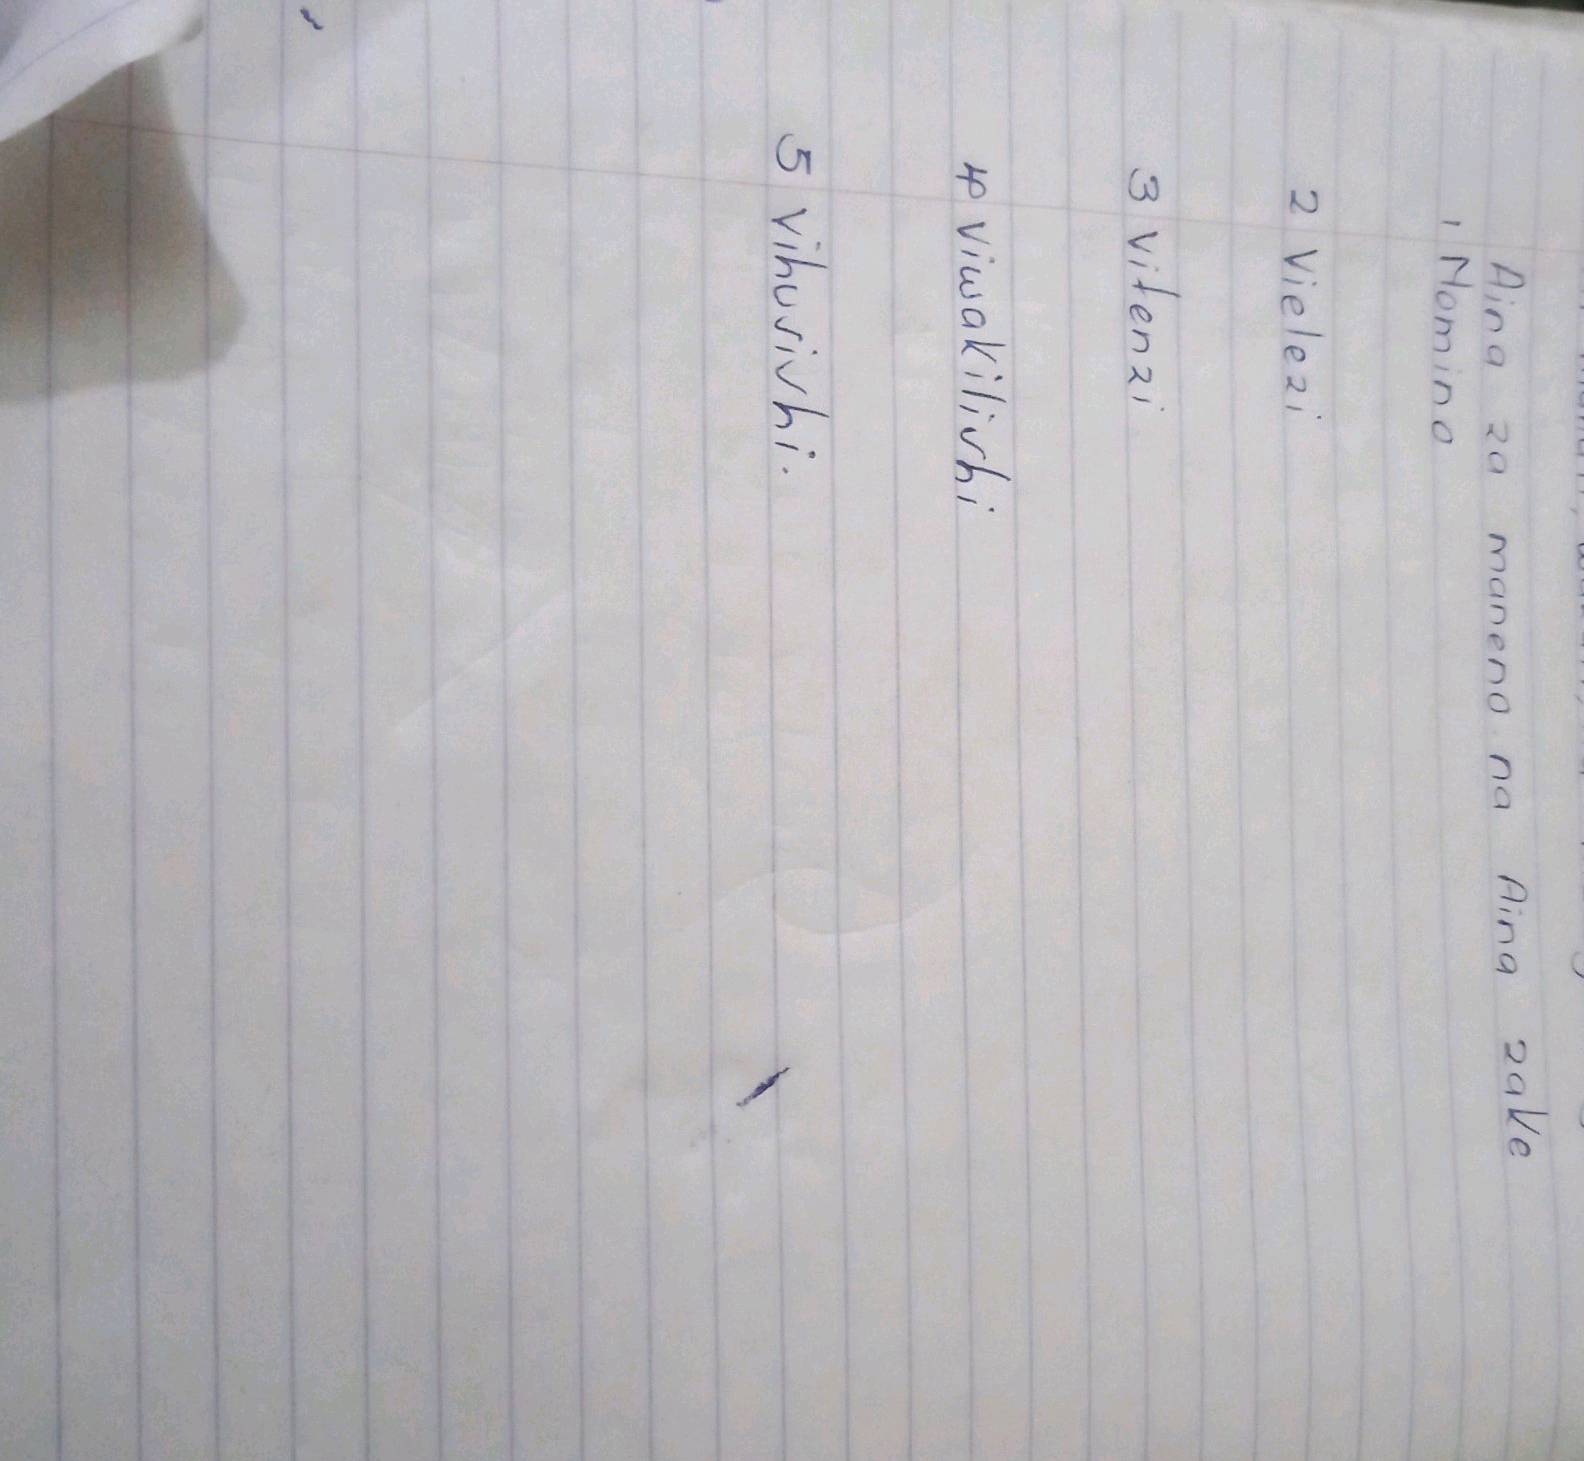 Aina za maneno na Aina zake
1 Nomino
2 Vielezi
3 Vitenzi
4 Viwakilishi
5 Vihusishi.